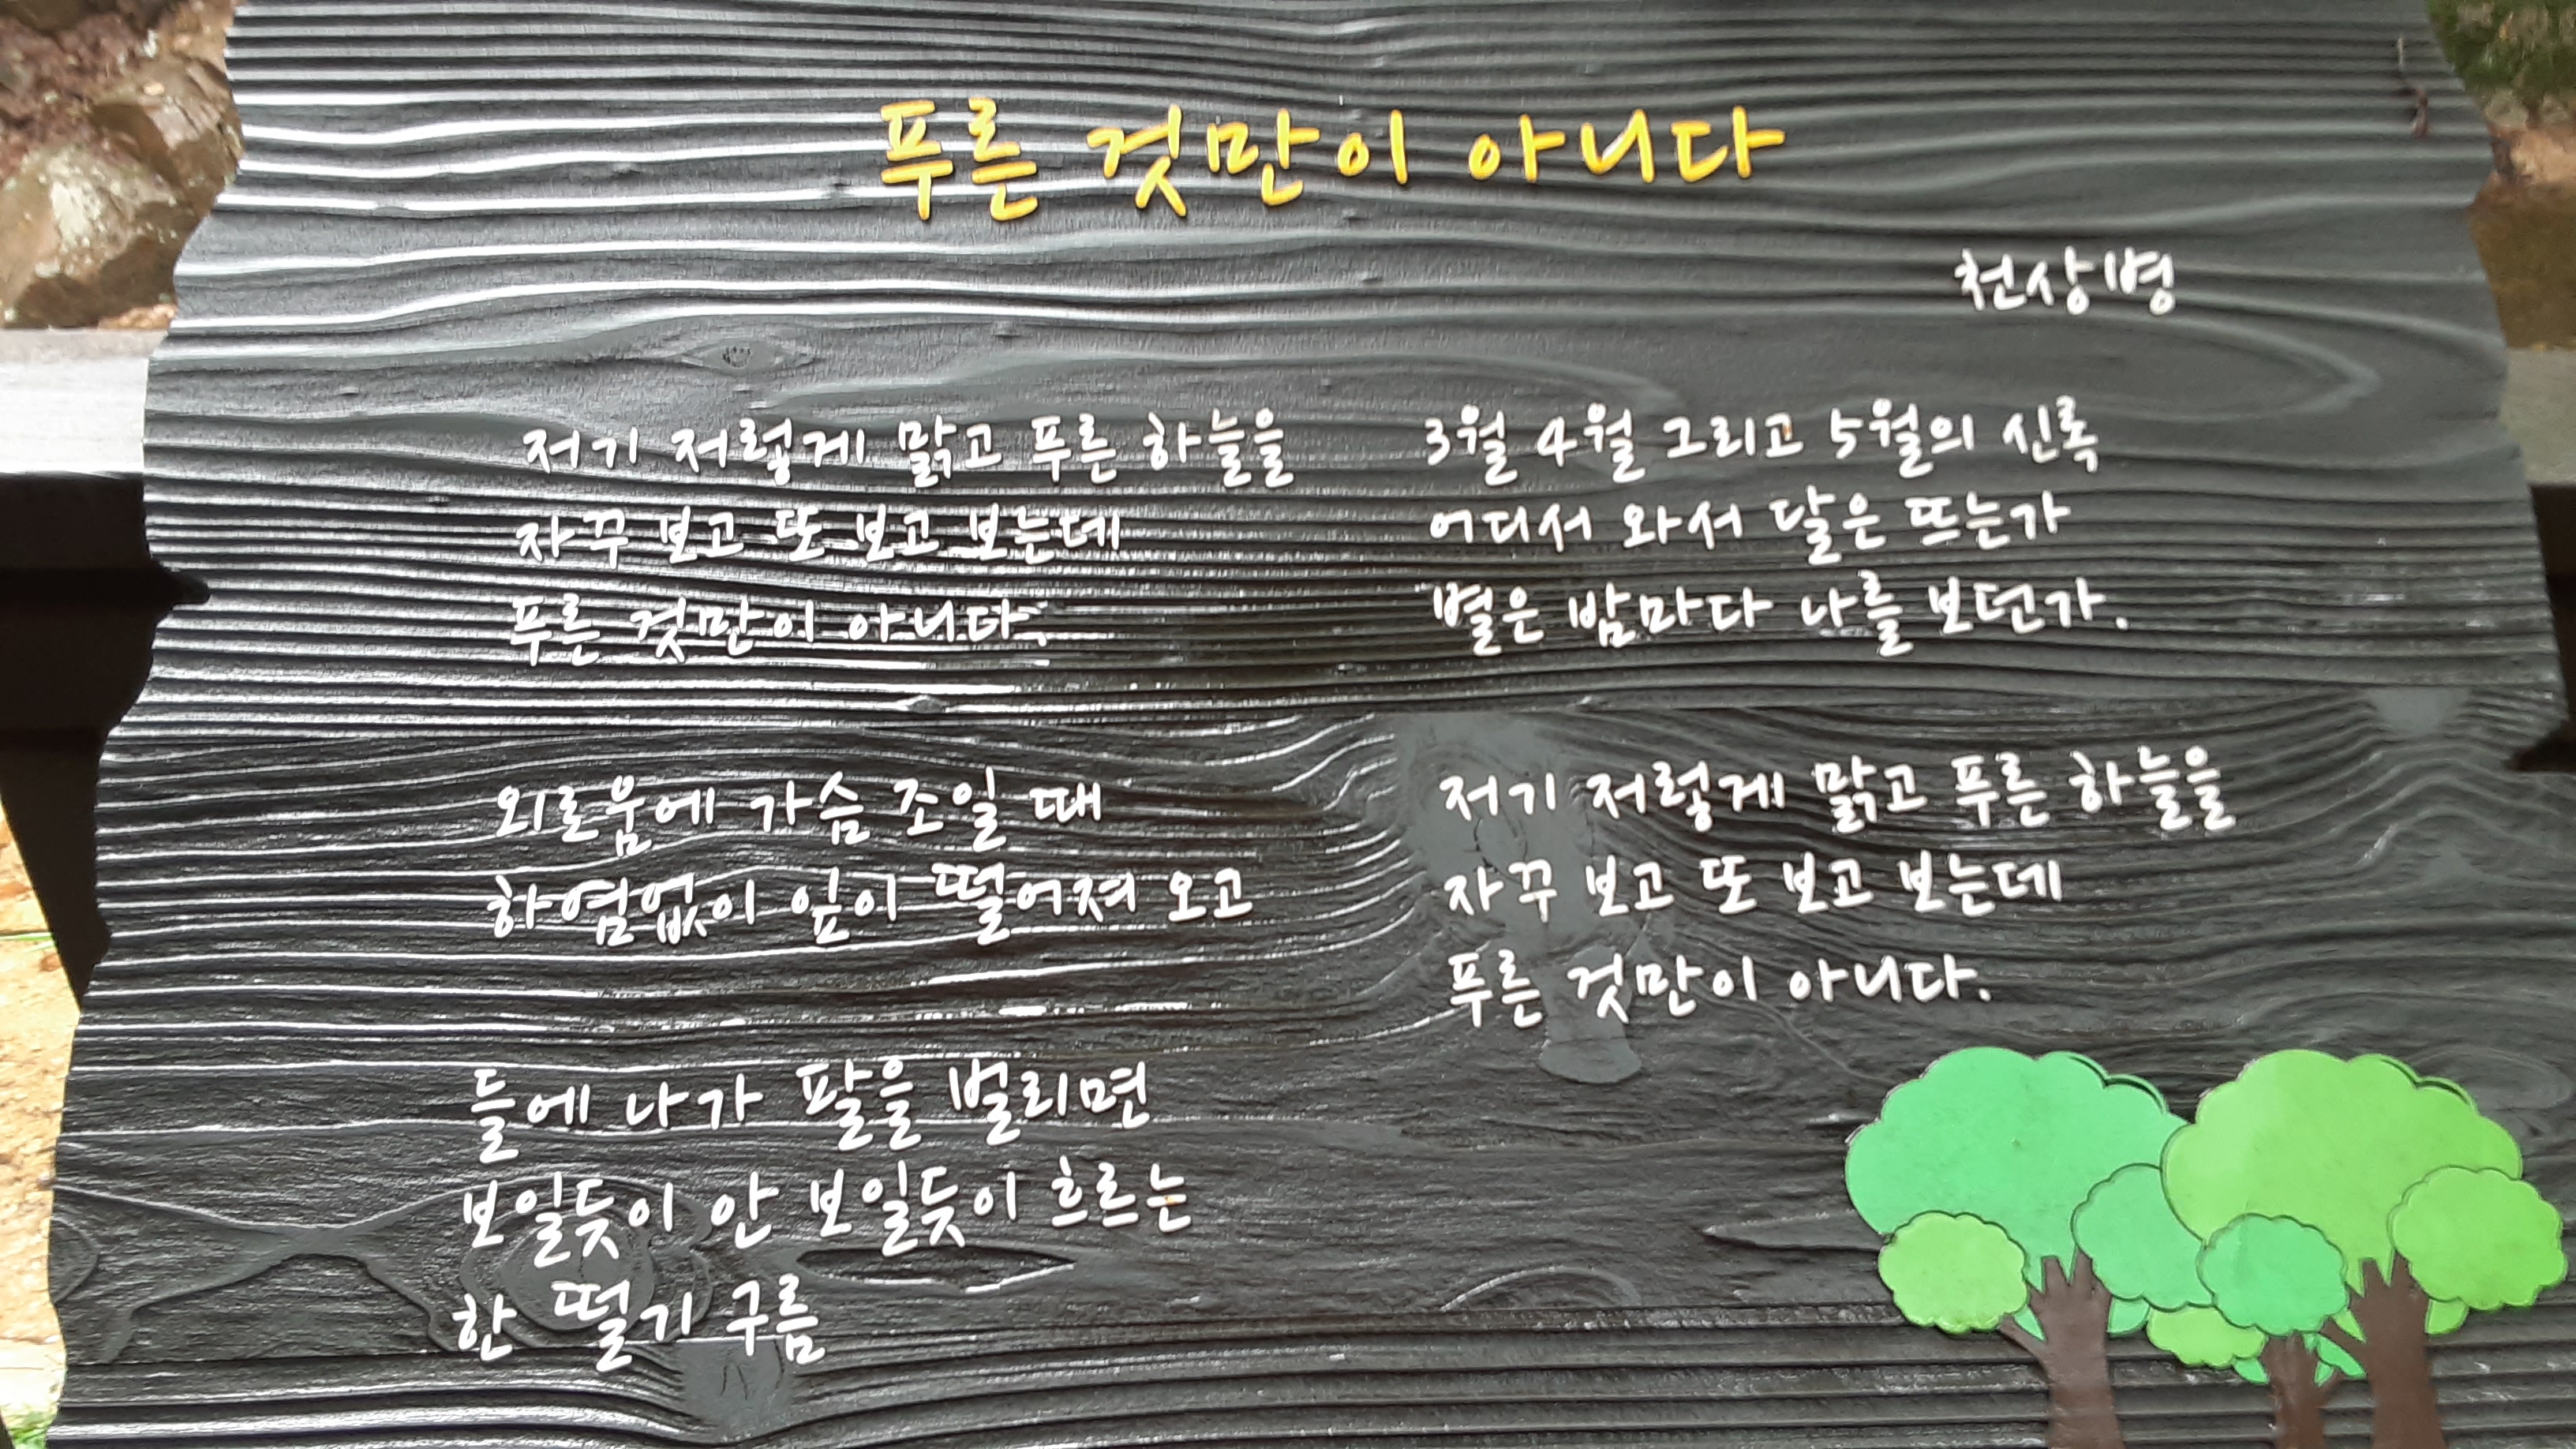 푸른 것만이 아니다
천상병
저기 저렇게 맑고 푸른 하늘을
자꾸 보고 또 보고 보는데
푸른 것만이 아니다.
외로움에 가슴 조일 때
하염없이 잎이 떨어져 오고
들에 나가 팔을 벌리면
보일듯이 안 보일듯이 흐르는
한 떨기 구름
3월 4월 그리고 5월의 신록
어디서 와서 달은 뜨는가
별은 밤마다 나를 보던가.
저기 저렇게 맑고 푸른 하늘을
자꾸 보고 또 보고 보는데
푸른 것만이 아니다.